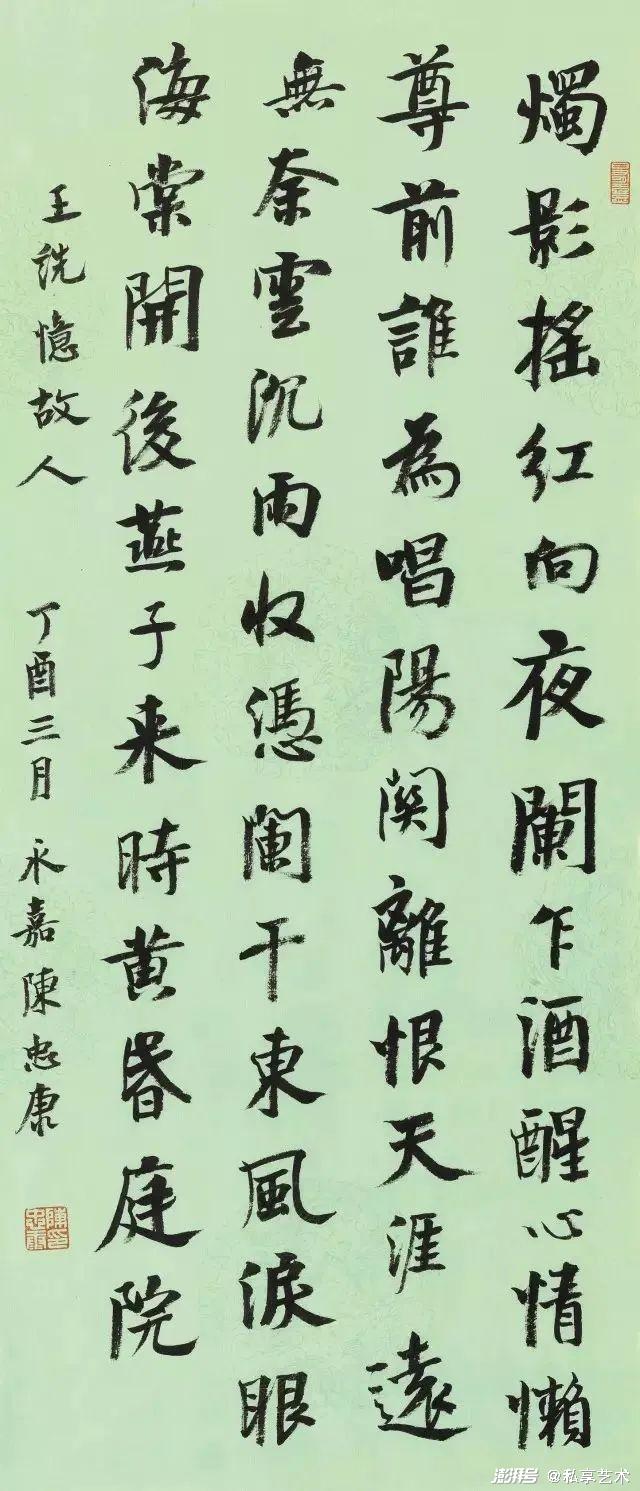 燭影搖紅向夜闌乍酒醒心情懶
尊前誰為唱陽関離恨天涯遠
無奈雲沉雨收憑闌干東風淚眼
海棠開後燕子来時黄昏庭院
王詵憶故人
丁酉三月 永嘉陳忠康
陳忠康印
澎湃号 @私享艺术